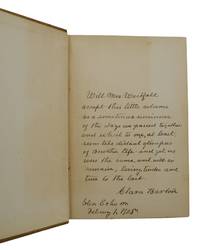 Will Mrs. Westfall
accept this little volume
as a sometime reminder
of the days we passed together
and which to me, at least,
seem like distant glimpses
of another life and yet we
were the same, and will so
remain, loving, tender and
true to the last
Clara Barton
Glen Echo
Feb'y 1, 1908